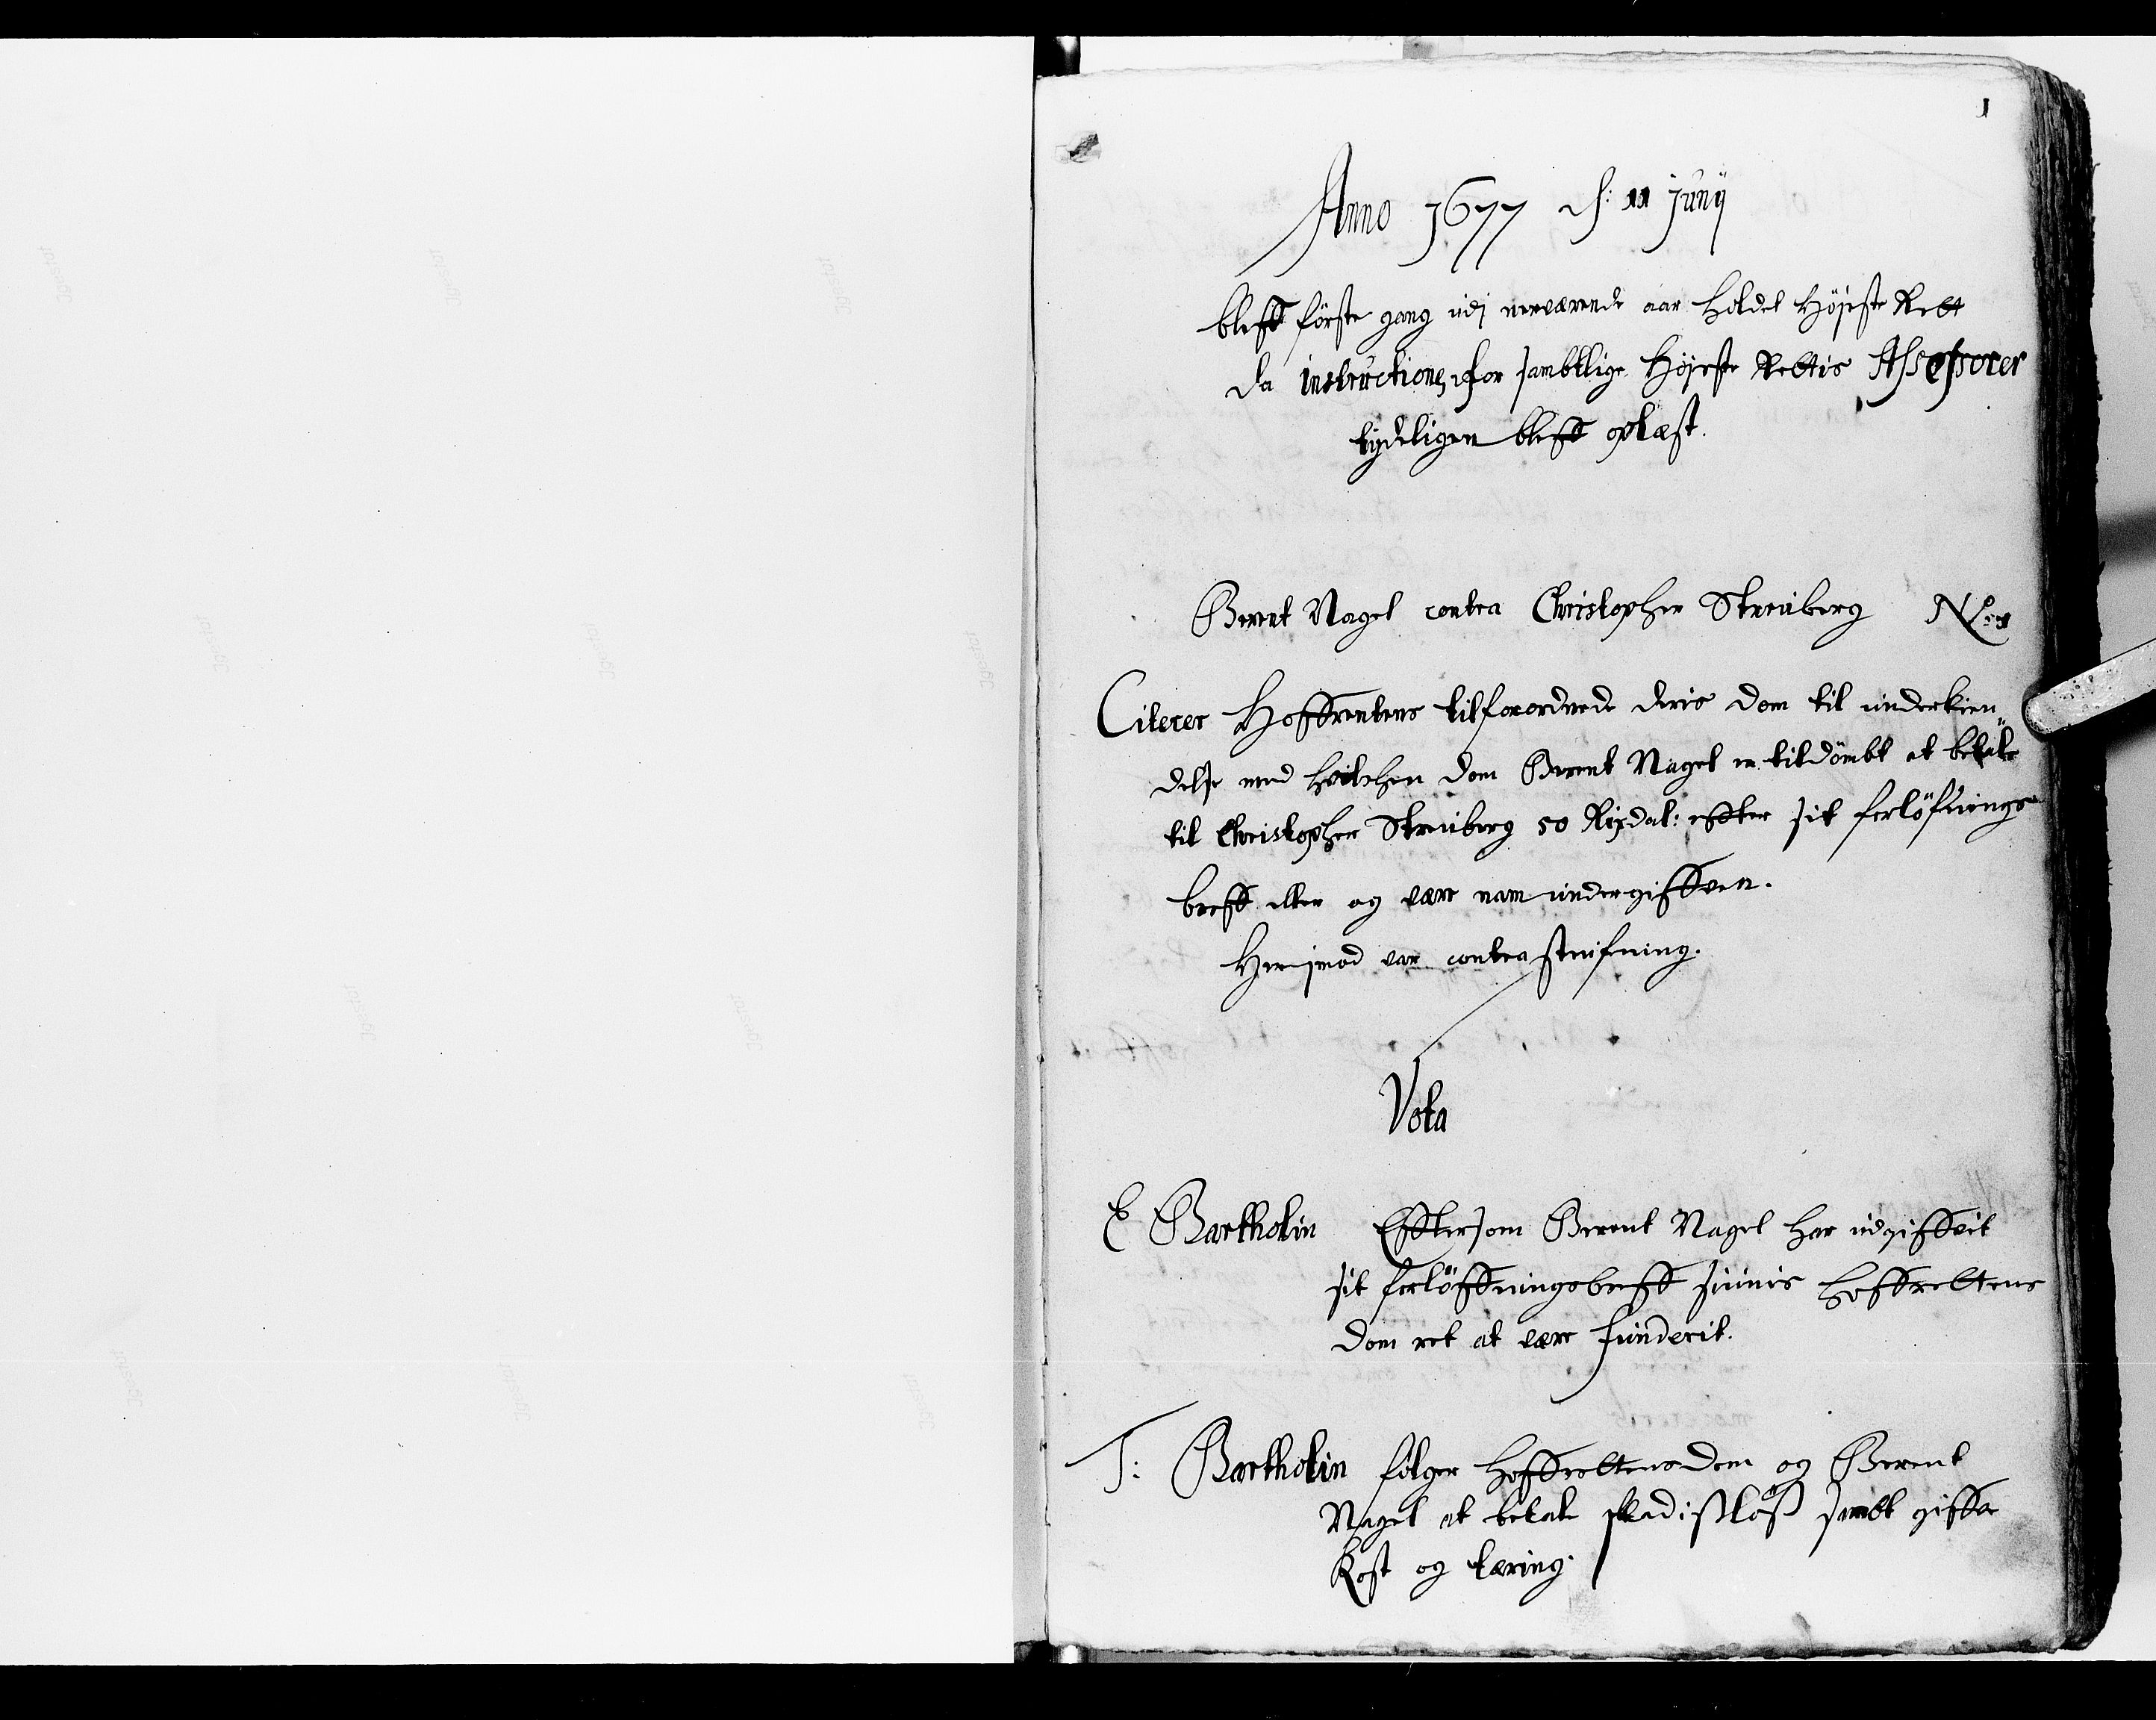 1
Anno 1677 d: 11 junij
bleff förste gang udj nerværende aar holdet Höjeste Rett
da instructionen for sambtlige Höjeste Rettis Assessorer
tydeligen bleff oplæst.
Berent Nagel contra Christopher Streuberg No: 1
Citerer Hoffrettens tilforordnede deris dom til underkien
delse med hvilchen dom Berent Nagel er tildömbt at betale
til Christopher Streuberg 50 Rixdal: effter sit forlöfnings
breff eller og være nam undergiffven.
Her imod var contra steufning.
Vota
E Bartholin Efftersom Berent Nagel har udgiffvit
sit forlöffningsbreff siunis Hoffrettens
dom ret at være funderit.
T: Bartholin fölger Hoffrettens dom og Berent
Nagel at betale skadislöss sambt giffve
Kost og tæring.